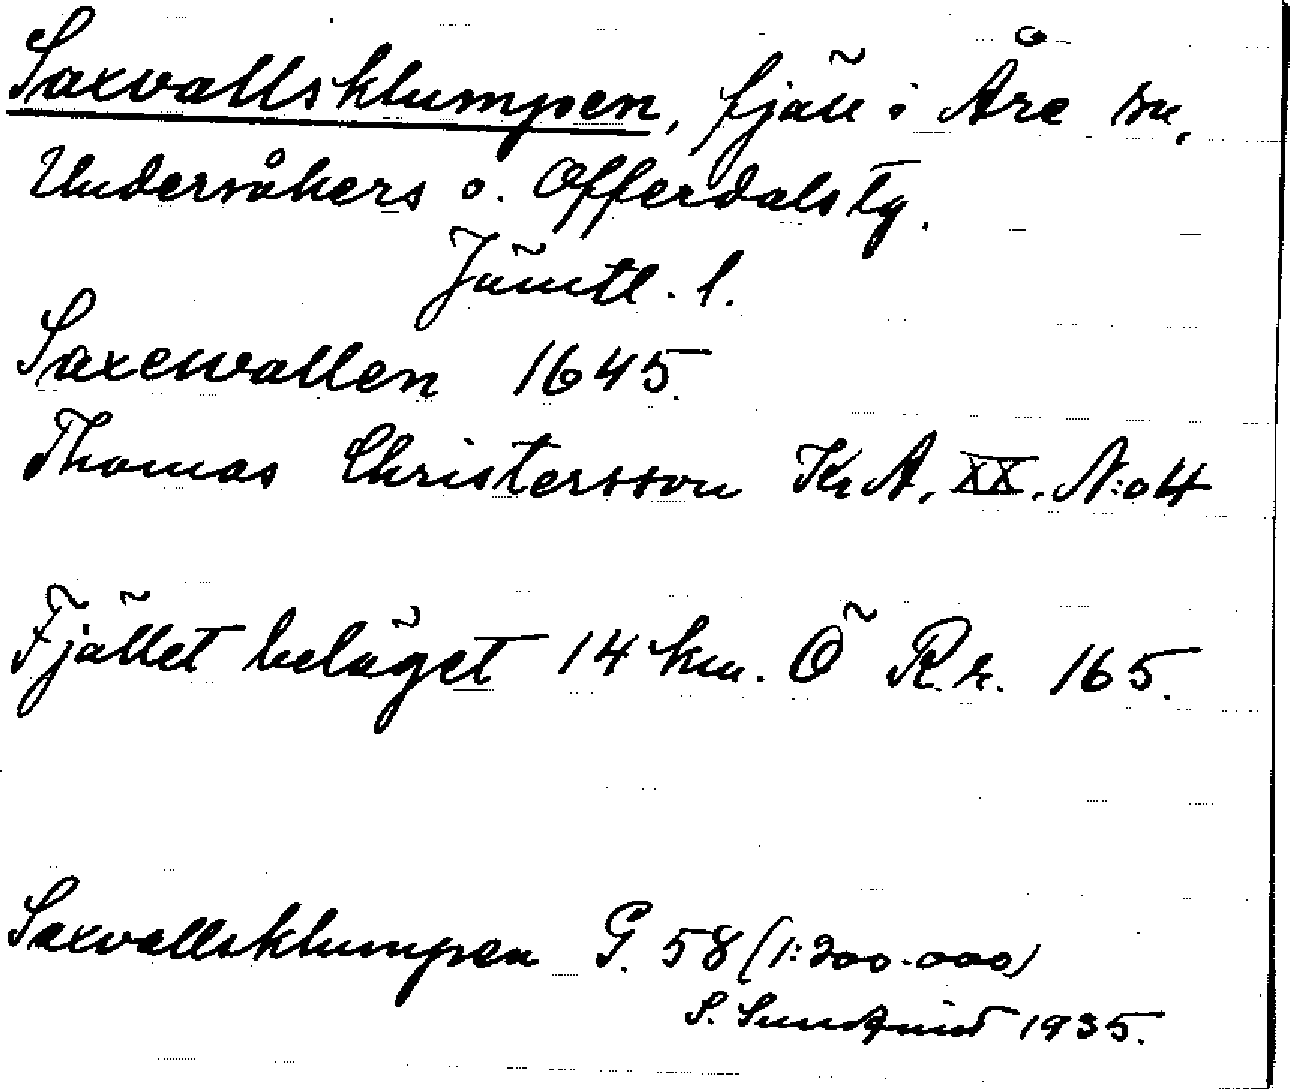 Saxvallsklumpen, fjäll i Åre sn,
Undersåkers o. Offerdals tg.
Jämtl. l.
Saxewallen 1645.
Thomas Christersson Kr A. XX. N:o 4
Fjället beläget 14 km. Ö R.r. 165.
Saxvallsklumpen G. 58 (1:200.000)
S. Sundqvist 1935.